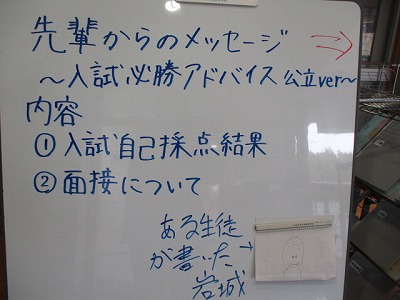 先輩からのメッセージ
～入試必勝アドバイス 公立ver～
内容
①入試自己採点結果
②面接について
ある生徒
が書いた→
岩城